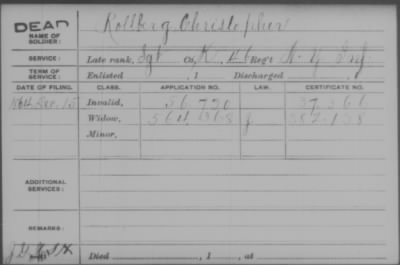 DEAD
NAME OF SOLDIER: Kollberg Christopher
SERVICE: Late rank, Sgt Co. K, 46 Regt N.Y. Inf.
TERM OF SERVICE: Enlisted , 1 Discharged , 1
DATE OF FILING. CLASS. APPLICATION NO. LAW. CERTIFICATE NO.
1864 Dec. 15 Invalid, 56 720 37 366
Widow,
Minor,
ADDITIONAL SERVICES:
REMARKS:
Died , 1 , at